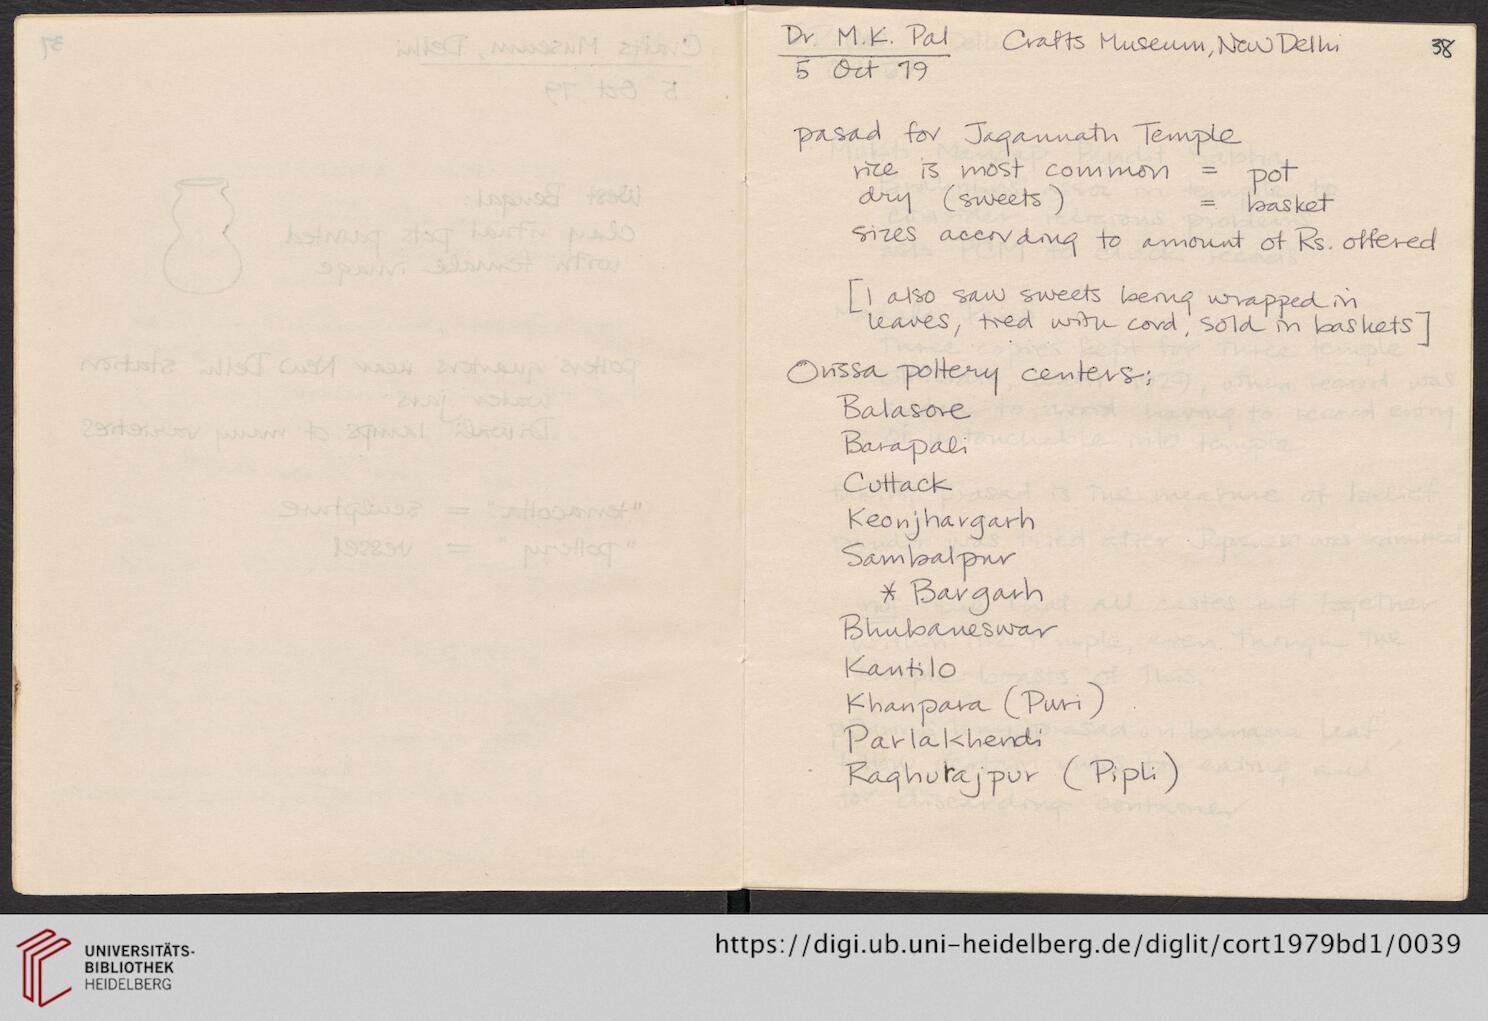 Dr. M.K. Pal Crafts Museum, New Delhi 38
5 Oct 79
pasad for Jagannath Temple
rice is most common = pot
dry (sweets) = basket
sizes according to amount of Rs. offered
[I also saw sweets being wrapped in
leaves, tied with cord, sold in baskets]
Orissa pottery centers:
Balasore
Barapali
Cuttack
Keonjhargarh
Sambalpur
* Bargarh
Bhubaneswar
Kantilo
Khanpara (Puri)
Parlakhendi
Raghurajpur (Pipli)
UNIVERSITÄTS-
BIBLIOTHEK
HEIDELBERG
https://digi.ub.uni-heidelberg.de/diglit/cort1979bd1/0039